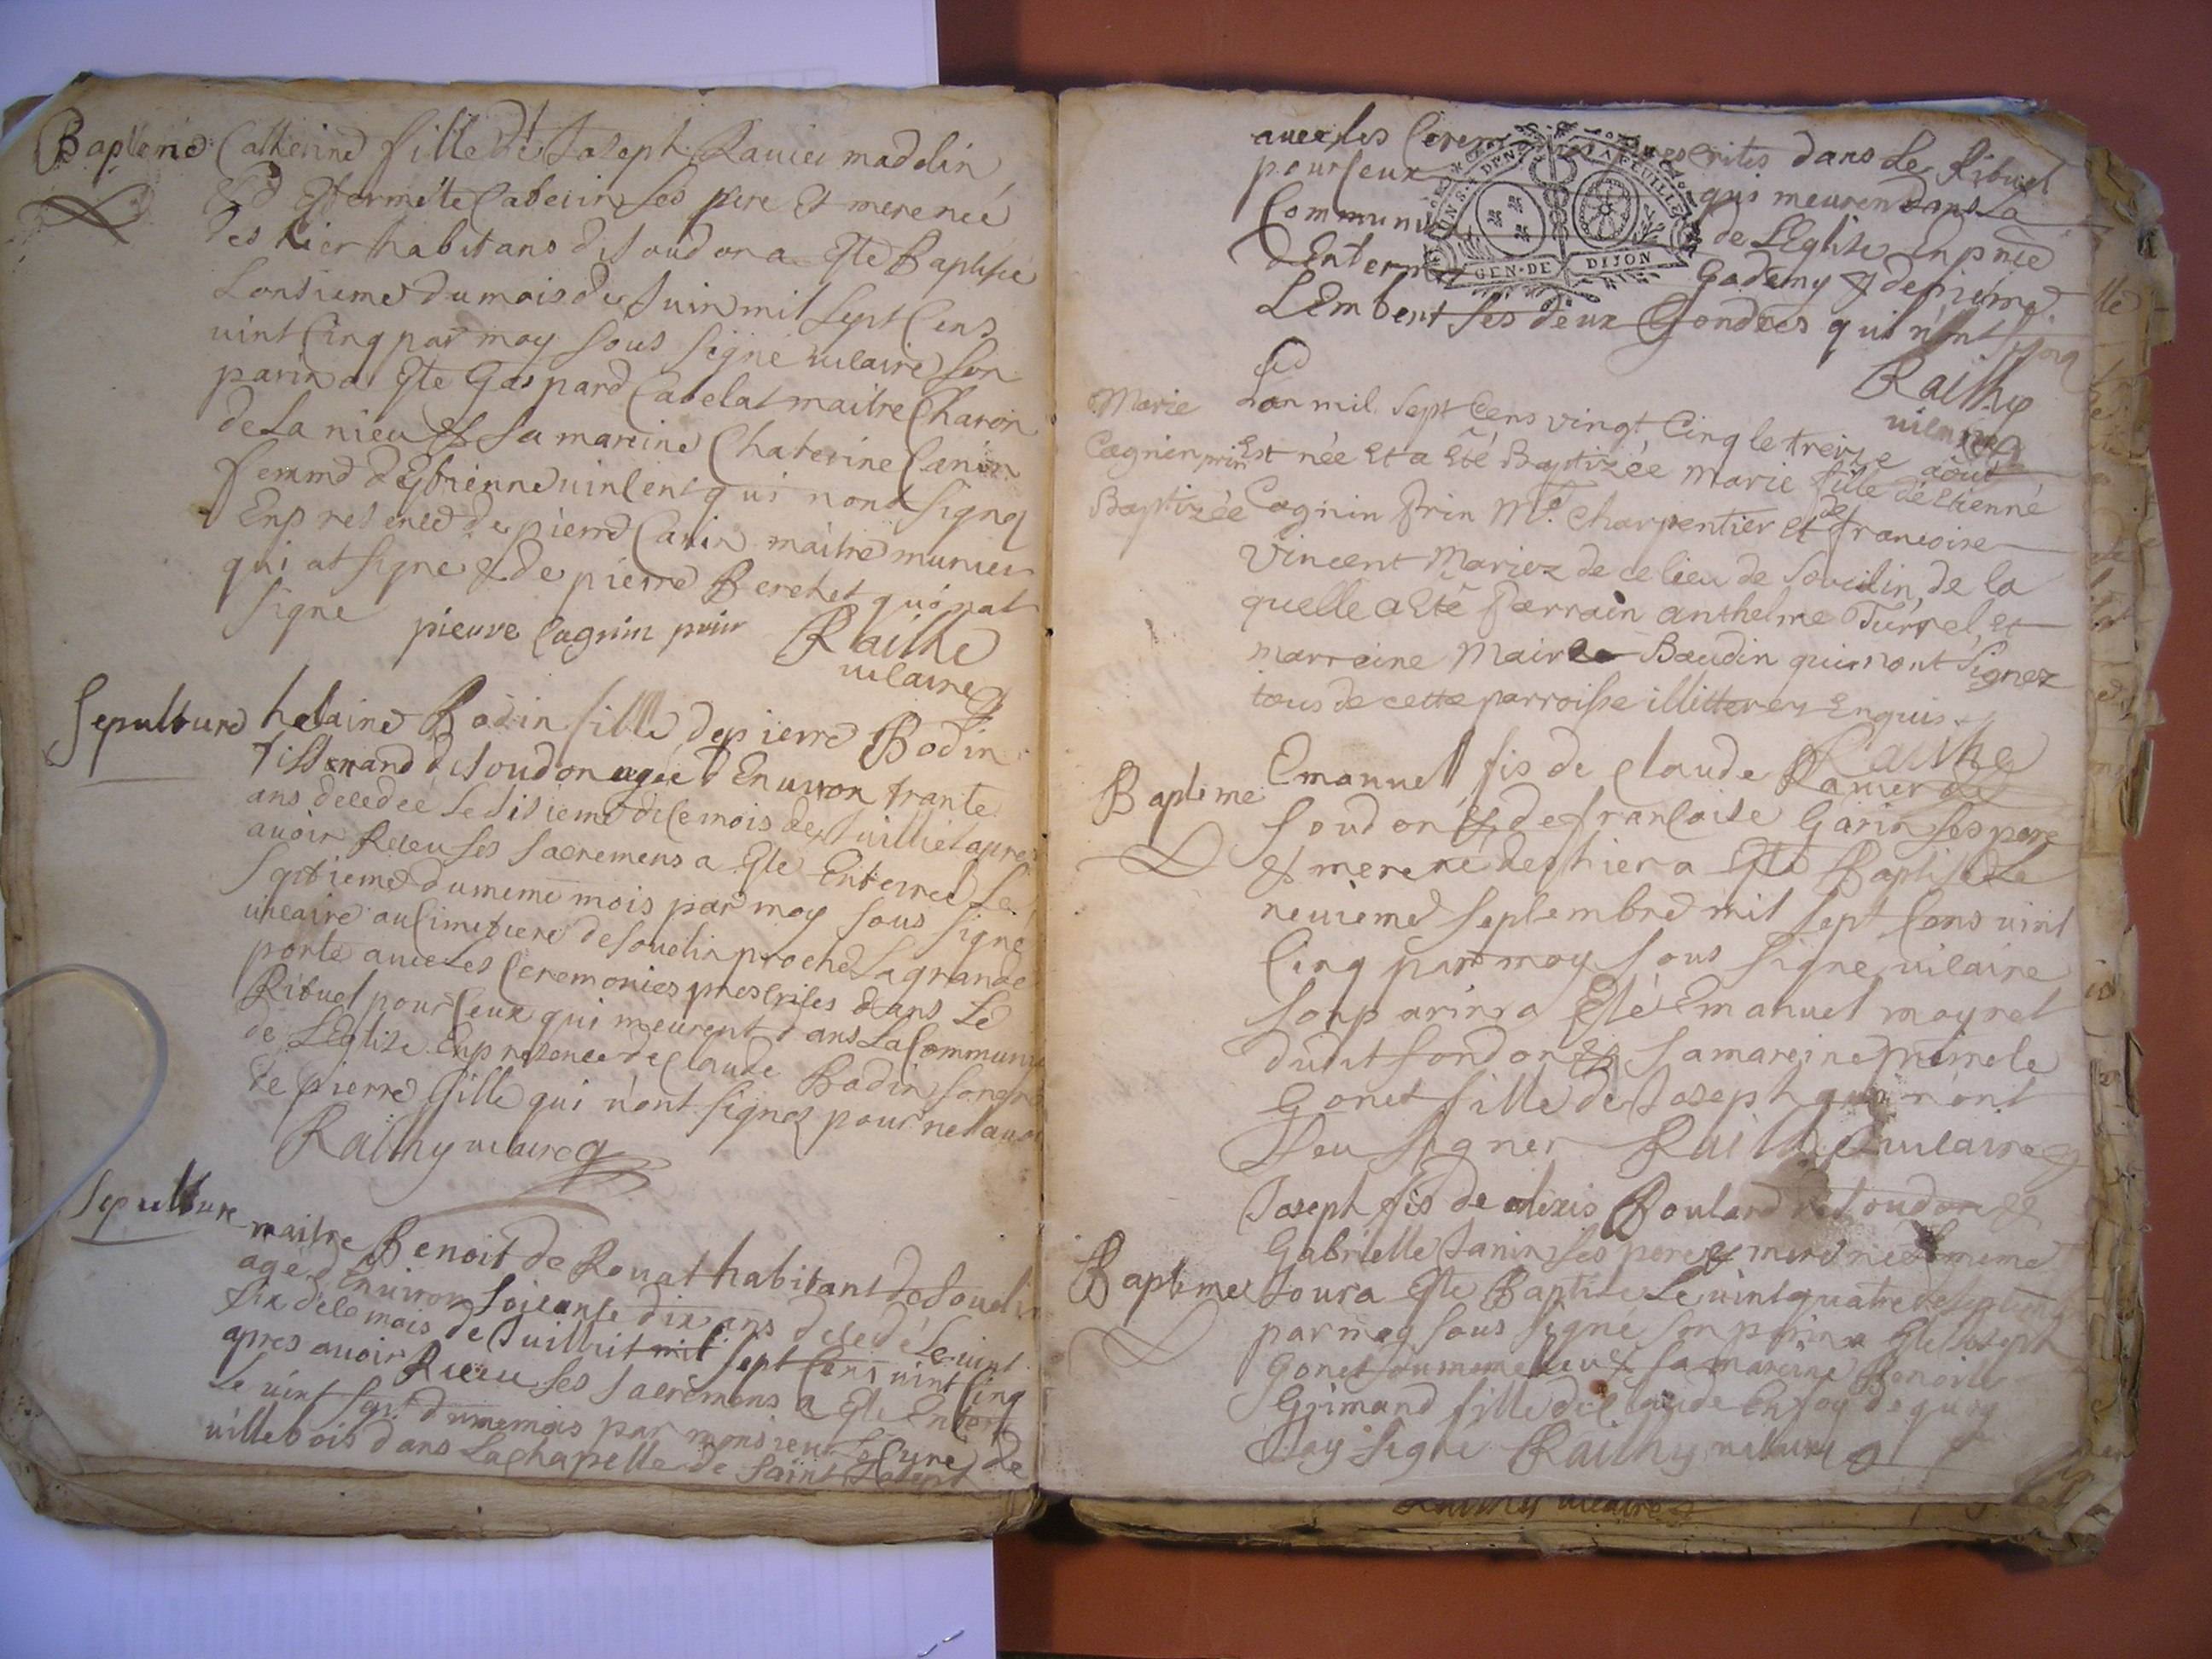 Bapteme Catherine fille de Joseph Rauier madelin
et d Estermette Cabelin ses pere et mere née
des hier habitans de Soudon a Esté Baptisée
Lonsieme du mois de Juin mil sept Cens
uint Cinq par moy sous signé uicaire son
parin a Esté Gaspard Cabelat maitre Charon
de La nieu & sa mareine Chaterine Canin
femme d Estienne uincent qui nont signez
En presence de pierre Canin maitre munier
qui at signe & de pierre Berchet qui nat
signe pierre Cagnin prin Railhe
uicaire
Sepulture helaine Bodin fille de pierre Bodin
Tisserand de Soudon agée d Enuiron trante
ans decedee Le sisieme de Ce mois de Juilliet apres
auoir Receu ses Sacremens a Esté Enterree Le
septieme du meme mois par moy sous signé
uicaire au Cimetiere de Souclin proche La grande
porte auec Les Ceremonies prescrites dans Le
Rituel pour Ceux qui meurent dans La Communi
de L'Eglise En presence de Claude Bodin son
de pierre Gille qui n'ont signez pour ne sauoi
Railhy uicaire
Sepulture maitre Benoit de Rouat habitant de Soucli
agé d Enuiron Soisante dix ans decedé Le uint
six de Ce mois de Juilliet mil sept Cens uint Cinq
apres auoir Receu ses Sacremens a Esté Enterré
Le uint sept du meme mois par monsieur Le Curé de
uillebois dans La Chapelle de Saint Joseph
auec les Ceremonies prescrites dans Le Rituel
pour Ceux qui meurent dans La
Communi de L'Eglise En pnce
d'Enterm Gademy & de pierre
L'Embert ses deux Gendres qui n'ont signe
Railhy
uicaire
GEN·DE DIJON
Marie Lan mil Sept Cens vingt Cinq le treize août
Cagnin prin Est née Et a Eté Baptizée Marie fille de Etienne
Baptizée Cagnin prin Mt. Charpentier et de francoise
Vincent Mariez de ce lieu de Souclin, de la
quelle a Eté Parrain anthelme Turrel, et
marraine Mairle Baudin qui nont signez
tous de cette parroisse illitterez Enquis
Railhe
Bapteme Emanuel fis de Claude Rauier de
Soudon & de francoise Garin ses pere
& mere né des hier a Esté Baptisé Le
neuieme Septembre mil sept Cens uint
Cinq par moy sous signe uicaire
son parin a Esté Emanuel mayret
dudit Sondon & sa mareine
Gonet fille de Joseph qui n'ont
sceu signer Railhe uicaire
Joseph fis de alexis Boulard de Soudon &
Gabrielle Janin ses pere & mere né Le meme
Bapteme Jour a Esté Baptise Le uint quatre de septembre
par moy sous signé son parin a Esté Joseph
Gonet du meme lieu & sa mareine Benoite
Grimand fille de Claude En foy de quoy
J'ay signé Railhy uicaire
uicaire